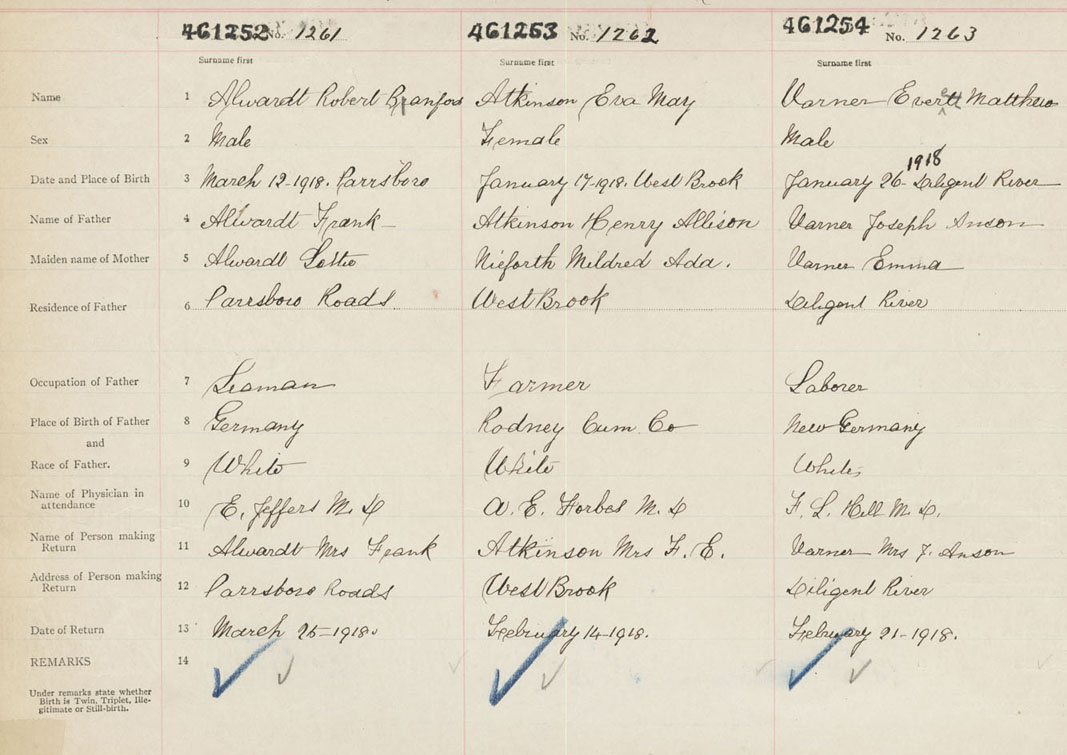 461252 No. 1261 461253 No. 1262 461254 No. 1263
Surname first Surname first Surname first
Name 1 Alwardt Robert Branford Atkinson Eva May Varner Everett Matthew
Sex 2 Male Female Male
1918
Date and Place of Birth 3 March 12-1918. Parrsboro January 17-1918. West Brook January 26- Diligent River
Name of Father 4 Alwardt Frank Atkinson Henry Allison Varner Joseph Anson
Maiden name of Mother 5 Alwardt Lottie Nieforth Mildred Ada. Varner Emma
Residence of Father 6 Parrsboro Roads West Brook Diligent River
Occupation of Father 7 Seaman Farmer Laborer
Place of Birth of Father 8 Germany Rodney Cum. Co New Germany
and
Race of Father. 9 White White White
Name of Physician in
attendance 10 E. Jeffers M. D A. E. Forbes M. D F. L. Hill M. D.
Name of Person making
Return 11 Alwardt Mrs Frank Atkinson Mrs F. E. Varner Mrs J. Anson
Address of Person making
Return 12 Parrsboro Roads West Brook Diligent River
Date of Return 13 March 25-1918. February 14-1918. February 21-1918.
REMARKS 14
Under remarks state whether
Birth is Twin, Triplet, Ille-
gitimate or Still-birth.